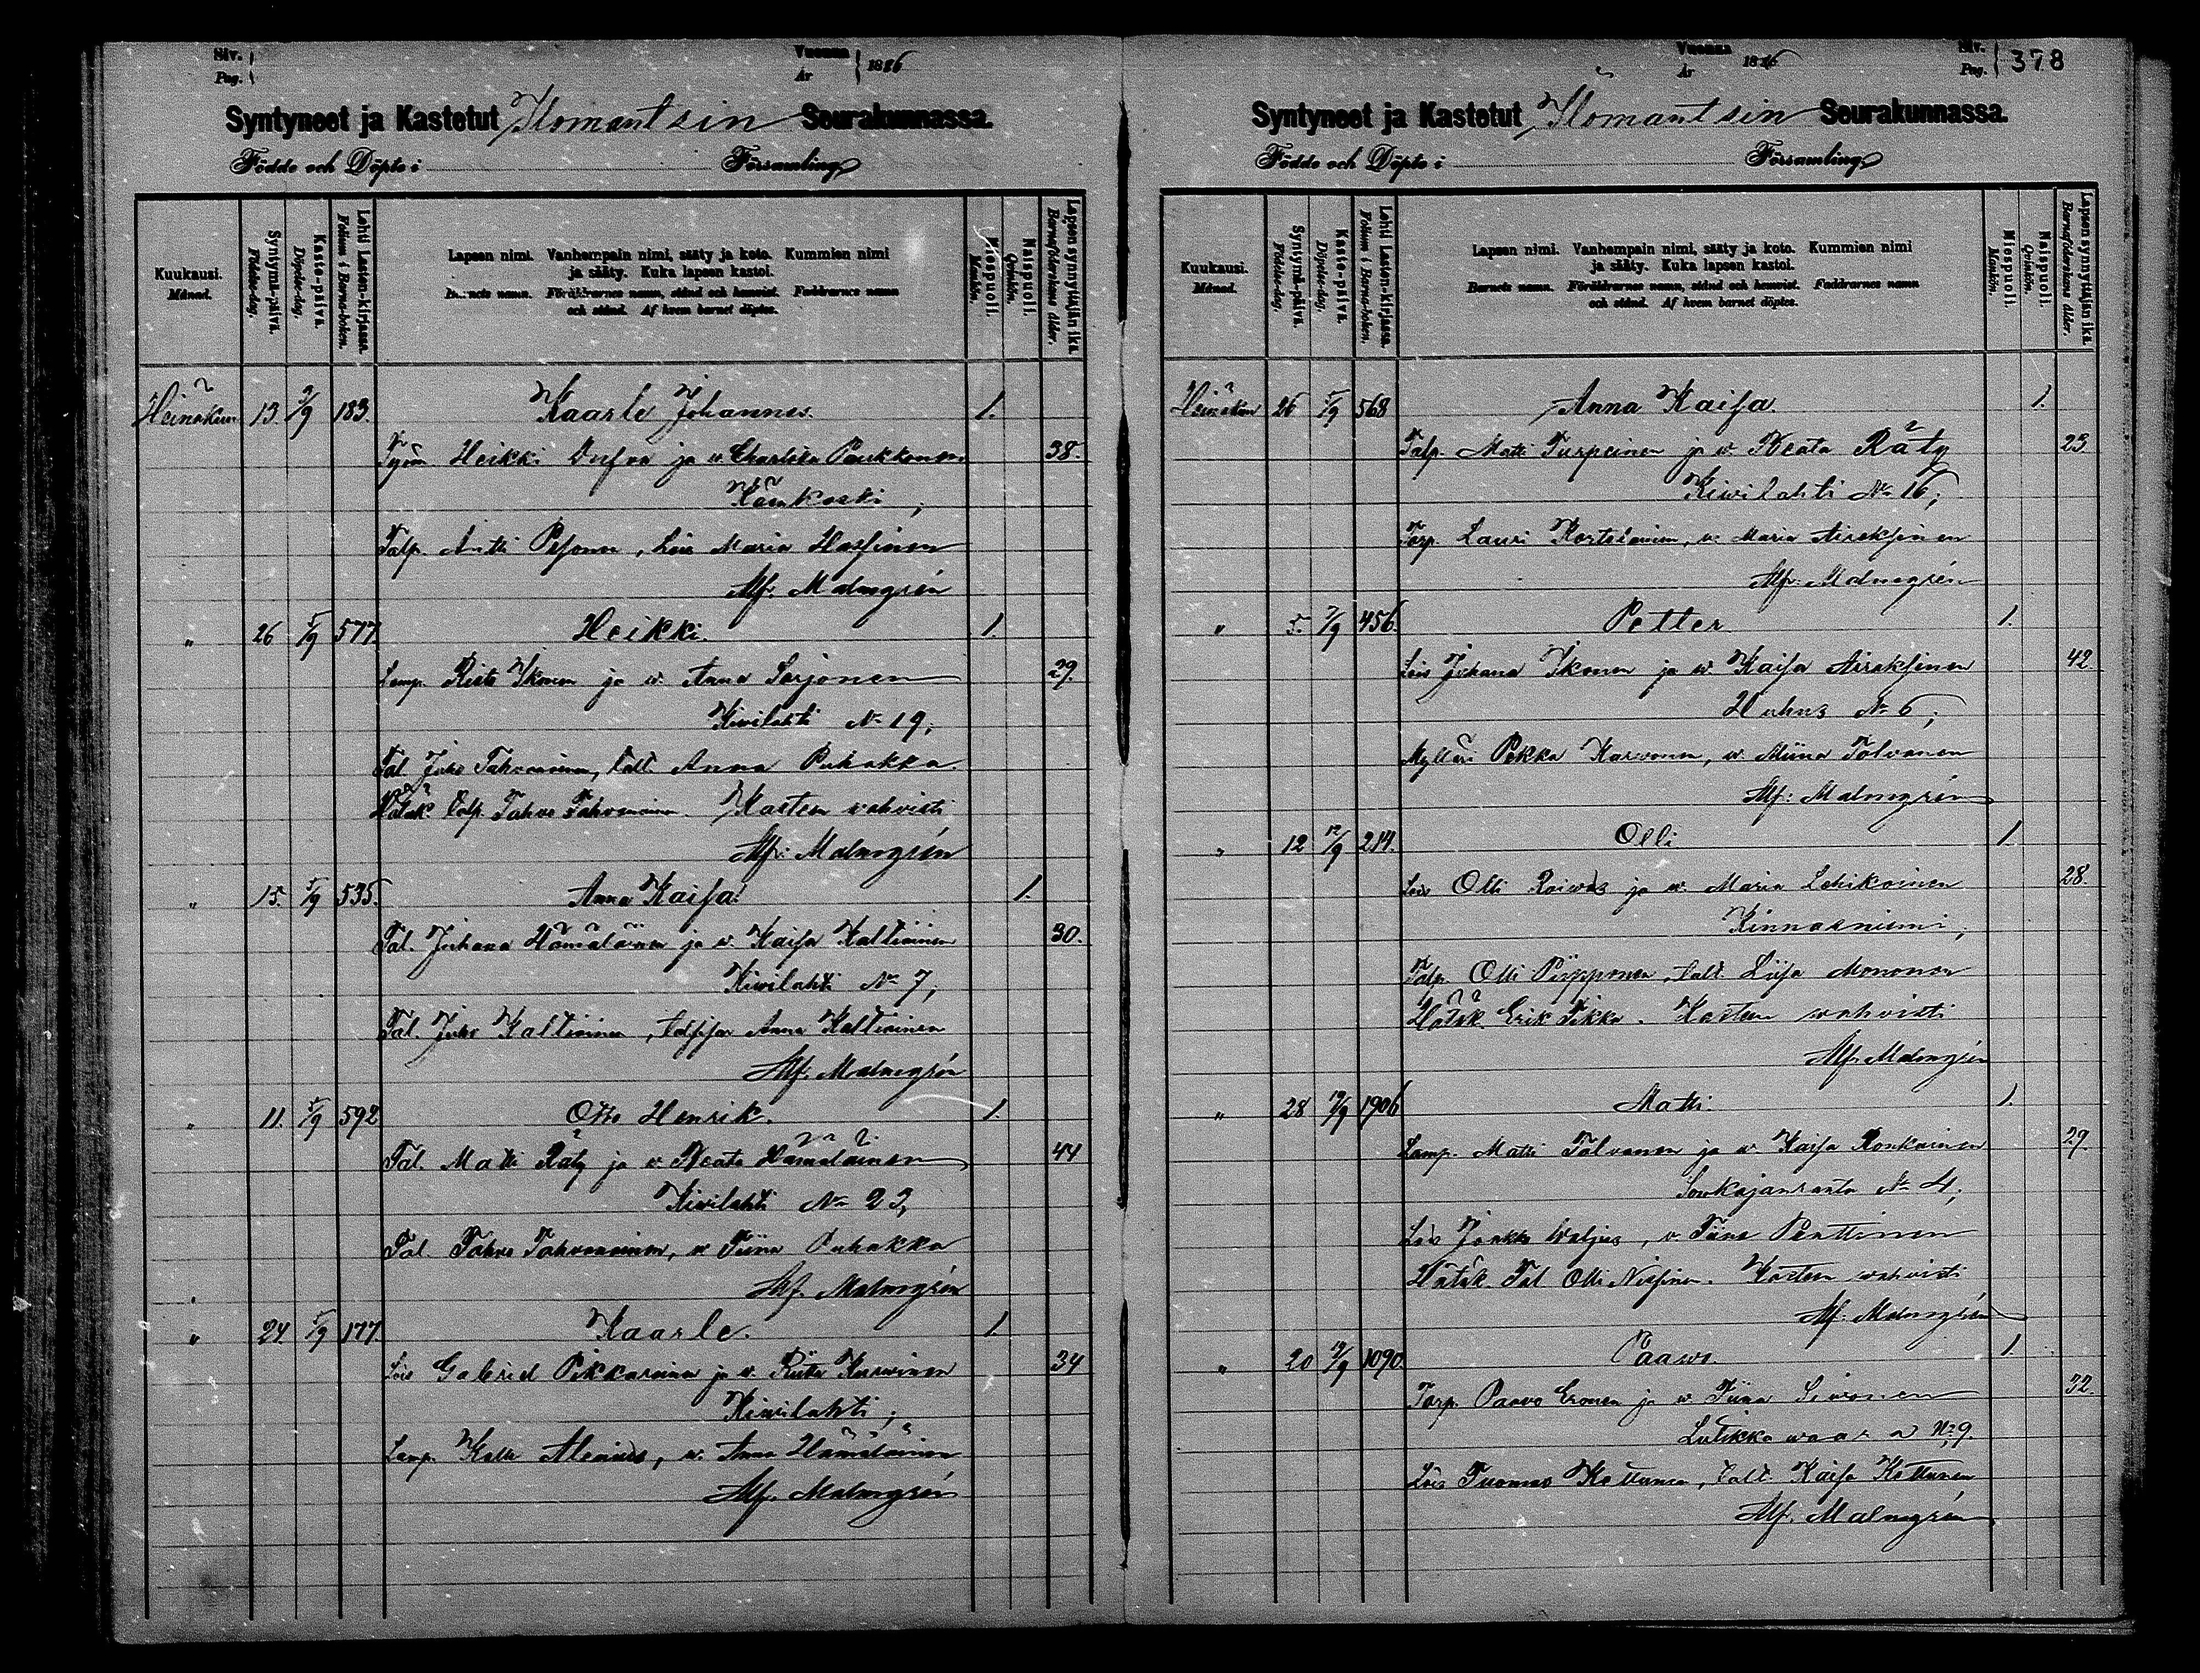 Siv.
Pag.
Vuonna
År
1886
Syntyneet ja Kastetut Ilomantsin Seurakunnassa.
Födde och Döpte i Församling
Kuukausi.
Månad.
Syntymä-päivä.
Födelse-dag.
Kaste-päivä.
Döpelse-dag.
Lehti Lasten-kirjassa.
Folium i Barna-boken.
Lapsen nimi. Vanhempain nimi, sääty ja koto. Kummien nimi
ja sääty. Kuka lapsen kastoi.
Barnets namn. Föräldrarnes namn, stånd och hemvist. Faddrarnes namn
och stånd. Af hvem barnet döptes.
Miespuoli.
Mankön.
Naispuoli.
Qvinkön.
Lapsen synnyttäjän ikä.
Barnaföderskans ålder.
Heinäkuu 13. 3/9 183. Kaarle Johannes. 1.
Heikki Dufva ja v. Charlotta Paukkonen 38.
Talp. Antti Pesonen, Lois Maria Hassinen
Alf. Malmgrén
" 26 5/9 577 Heikki. 1.
Lamp. Risto Ikonen ja v. Anna Sarjonen 29.
Kivilahti No 19;
Tal. Juho Tahvanainen, talt. Anna Puhakka
Hätäk. talp. Tahvo Tahvanainen. Kasteen vahvisti
Alf. Malmgrén
" 15. 5/9 535. Anna Kaisa. 1.
Tal. Juhana Hämäläinen ja v. Kaisa Kaltiainen 30.
Kivilahti No 7;
Tal. Juho Kaltiainen, Anna Kaltiainen
Alf. Malmgrén
" 11. 5/9 592 Otto Henrik. 1.
Tal. Matti Räty ja v. Beata Hämäläinen 44
Kivilahti No 23,
Tal. Tahvo Tahvanainen, v. Tiina Puhakka
Alf. Malmgrén
" 24 5/9 177. Kaarle. 1.
Lois Gabriel Pikkarainen ja v. Riitta Karvinen 34
Kivilahti;
Lamp. Kalle Alenius, v. Anna Hämäläinen
Alf. Malmgrén
Vuonna
År
1886
Siv.
Pag.
378
Syntyneet ja Kastetut Ilomantsin Seurakunnassa.
Födde och Döpte i Församling
Kuukausi.
Månad.
Syntymä-päivä.
Födelse-dag.
Kaste-päivä.
Döpelse-dag.
Lehti Lasten-kirjassa.
Folium i Barna-boken.
Lapsen nimi. Vanhempain nimi, sääty ja koto. Kummien nimi
ja sääty. Kuka lapsen kastoi.
Barnets namn. Föräldrarnes namn, stånd och hemvist. Faddrarnes namn
och stånd. Af hvem barnet döptes.
Miespuoli.
Mankön.
Naispuoli.
Qvinkön.
Lapsen synnyttäjän ikä.
Barnaföderskans ålder.
Heinäkuu 26 5/9 568 Anna Kaisa. 1.
Talp. Matti Turpeinen ja v. Beata Räty 23
Kivilahti No 16;
Torp. Lauri Kortelainen, v. Maria Airaksinen
Alf. Malmgrén
" 5. 7/9 456. Petter 1.
Lois Juhana Ikonen ja v. Kaisa Airaksinen 42
Huhus No 6;
Mylläri Pekka Karvonen, v. Miina Tolvanen
Alf. Malmgrén
" 12 12/9 214. Olli 1.
Lois Olli Roivas ja v. Maria Lehikoinen 28.
Kinnasniemi;
Talp. Olli Piipponen, talt. Liisa Mononen
Hätäk. Erik Tikka. Kasteen vahvisti
Alf. Malmgrén
" 28 19/9 1906 Matti. 1.
Lamp. Matti Tolvanen ja v. Kaisa Ronkainen 29.
Sonkajanranta No 4;
Lois Jaakko Valjus, v. Tiina Penttinen
Hätäk. Tal. Olli Nissinen. Kasteen vahvisti
Alf. Malmgrén
" 20 19/9 1090. Paavo. 1.
Torp. Paavo Eronen ja v. Tiina Sivonen 32.
Lutikkavaara No 9.
Lois Tuomas Kettunen, talt. Kaisa Kettunen
Alf. Malmgrén